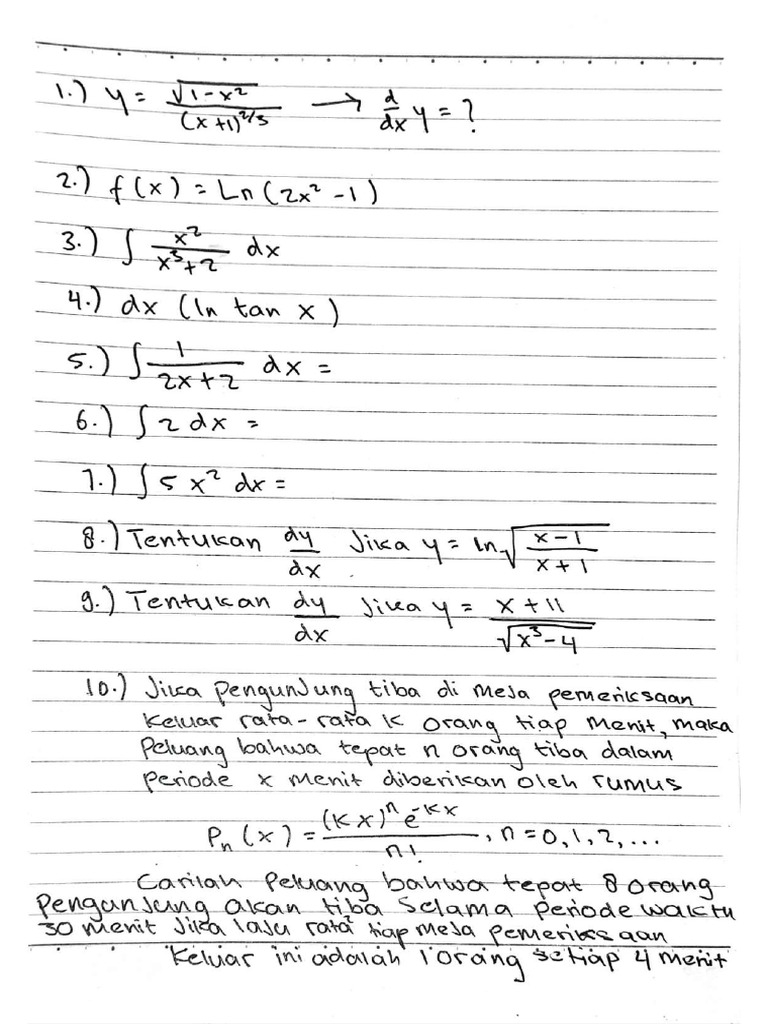 1.) y = √(1-x²) / (x+1)^(2/3) → d/dx y = ?
2.) f(x) = Ln (2x² -1)
3.) ∫ x² / (x³+2) dx
4.) dx (ln tan x)
5.) ∫ 1 / (2x+2) dx =
6.) ∫ 2 dx =
7.) ∫ 5 x² dx =
8.) Tentukan dy/dx Jika y = ln √((x-1)/(x+1))
9.) Tentukan dy/dx Jika y = (x+11) / √(x³-4)
10.) Jika pengunjung tiba di meja pemeriksaan
keluar rata-rata k orang tiap menit, maka
peluang bahwa tepat n orang tiba dalam
periode x menit diberikan oleh rumus
Pₙ (x) = (kx)ⁿ e^(-kx) / n! , n = 0, 1, 2, ...
Carilah peluang bahwa tepat 8 orang
pengunjung akan tiba selama periode waktu
30 menit jika laju rata² tiap meja pemeriksaan
keluar ini adalah 1 orang setiap 4 menit